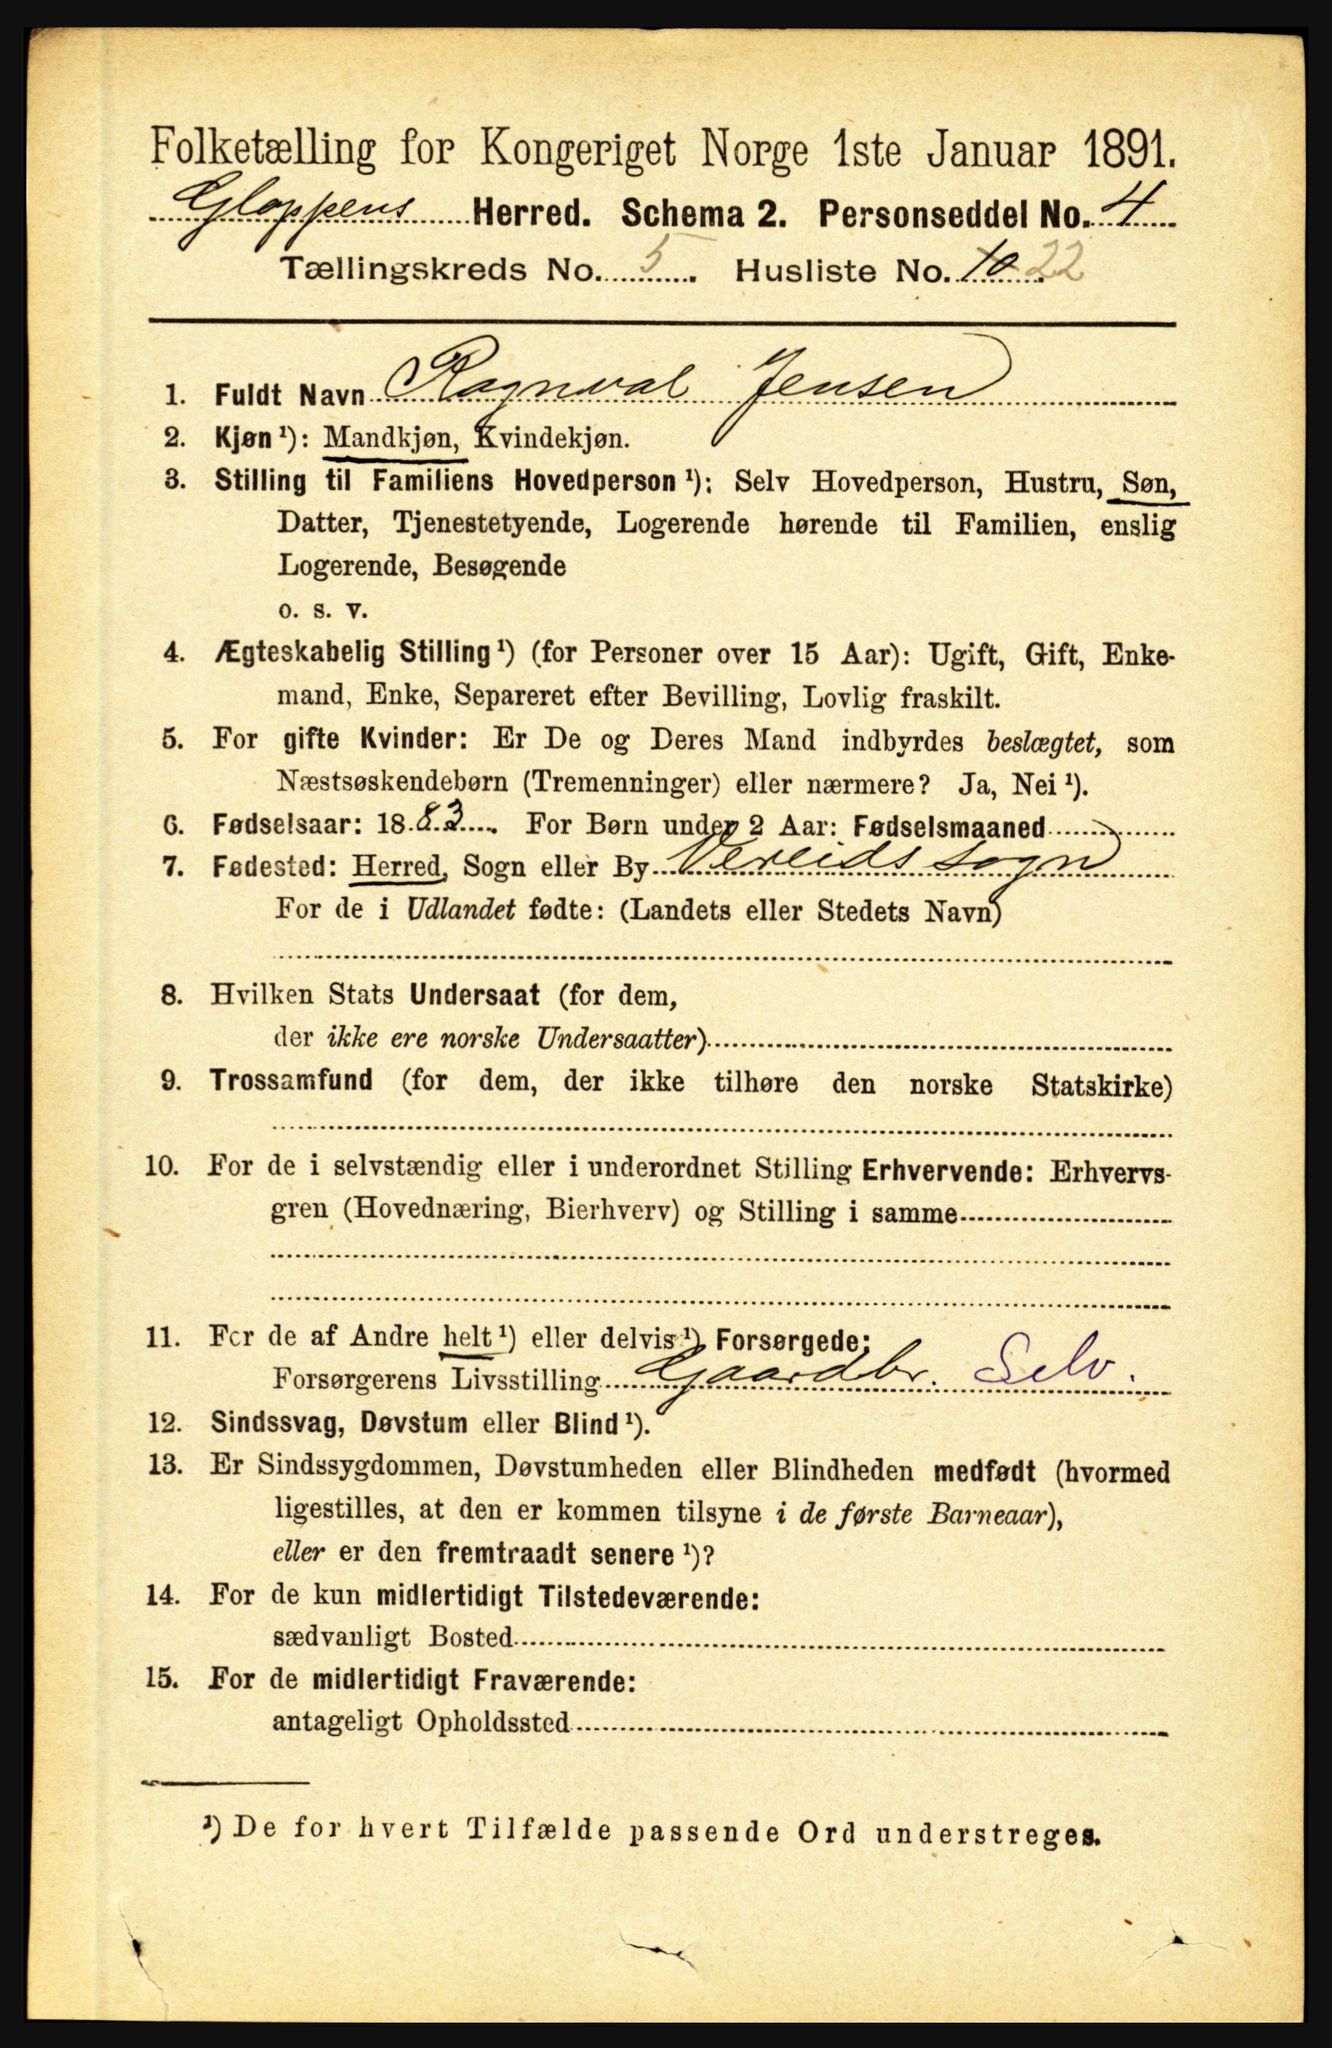 Folketælling for Kongeriget Norge 1ste Januar 1891.
Gloppens Herred. Schema 2. Personseddel No. 4
Tællingskreds No. 5. Husliste No. 10 22
1. Fuldt Navn Ragnval Jensen
2. Kjøn ¹): Mandkjøn, Kvindekjøn.
3. Stilling til Familiens Hovedperson ¹): Selv Hovedperson, Hustru, Søn,
Datter, Tjenestetyende, Logerende hørende til Familien, enslig
Logerende, Besøgende
o. s. v.
4. Ægteskabelig Stilling ¹) (for Personer over 15 Aar): Ugift, Gift, Enke-
mand, Enke, Separeret efter Bevilling, Lovlig fraskilt.
5. For gifte Kvinder: Er De og Deres Mand indbyrdes beslægtet, som
Næstsøskendebørn (Tremenninger) eller nærmere? Ja, Nei ¹).
6. Fødselsaar: 1883. For Børn under 2 Aar: Fødselsmaaned
7. Fødested: Herred, Sogn eller By Vereids sogn
For de i Udlandet fødte: (Landets eller Stedets Navn)
8. Hvilken Stats Undersaat (for dem,
der ikke ere norske Undersaatter)
9. Trossamfund (for dem, der ikke tilhøre den norske Statskirke)
10. For de i selvstændig eller i underordnet Stilling Erhvervende: Erhvervs-
gren (Hovednæring, Bierhverv) og Stilling i samme
11. For de af Andre helt ¹) eller delvis ¹) Forsørgede:
Forsørgerens Livsstilling Gaardbr. Selv.
12. Sindssvag, Døvstum eller Blind ¹).
13. Er Sindssygdommen, Døvstumheden eller Blindheden medfødt (hvormed
ligestilles, at den er kommen tilsyne i de første Barneaar),
eller er den fremtraadt senere ¹)?
14. For de kun midlertidigt Tilstedeværende:
sædvanligt Bosted
15. For de midlertidigt Fraværende:
antageligt Opholdssted
¹) De for hvert Tilfælde passende Ord understreges.